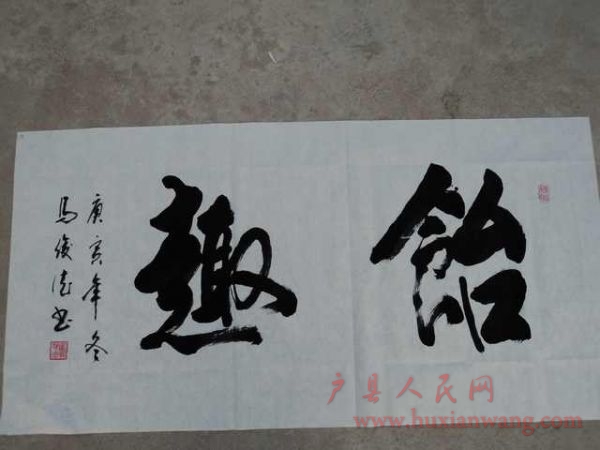 饴趣
庚寅年冬
马俊德书
户县人民网
www.huxianwang.com